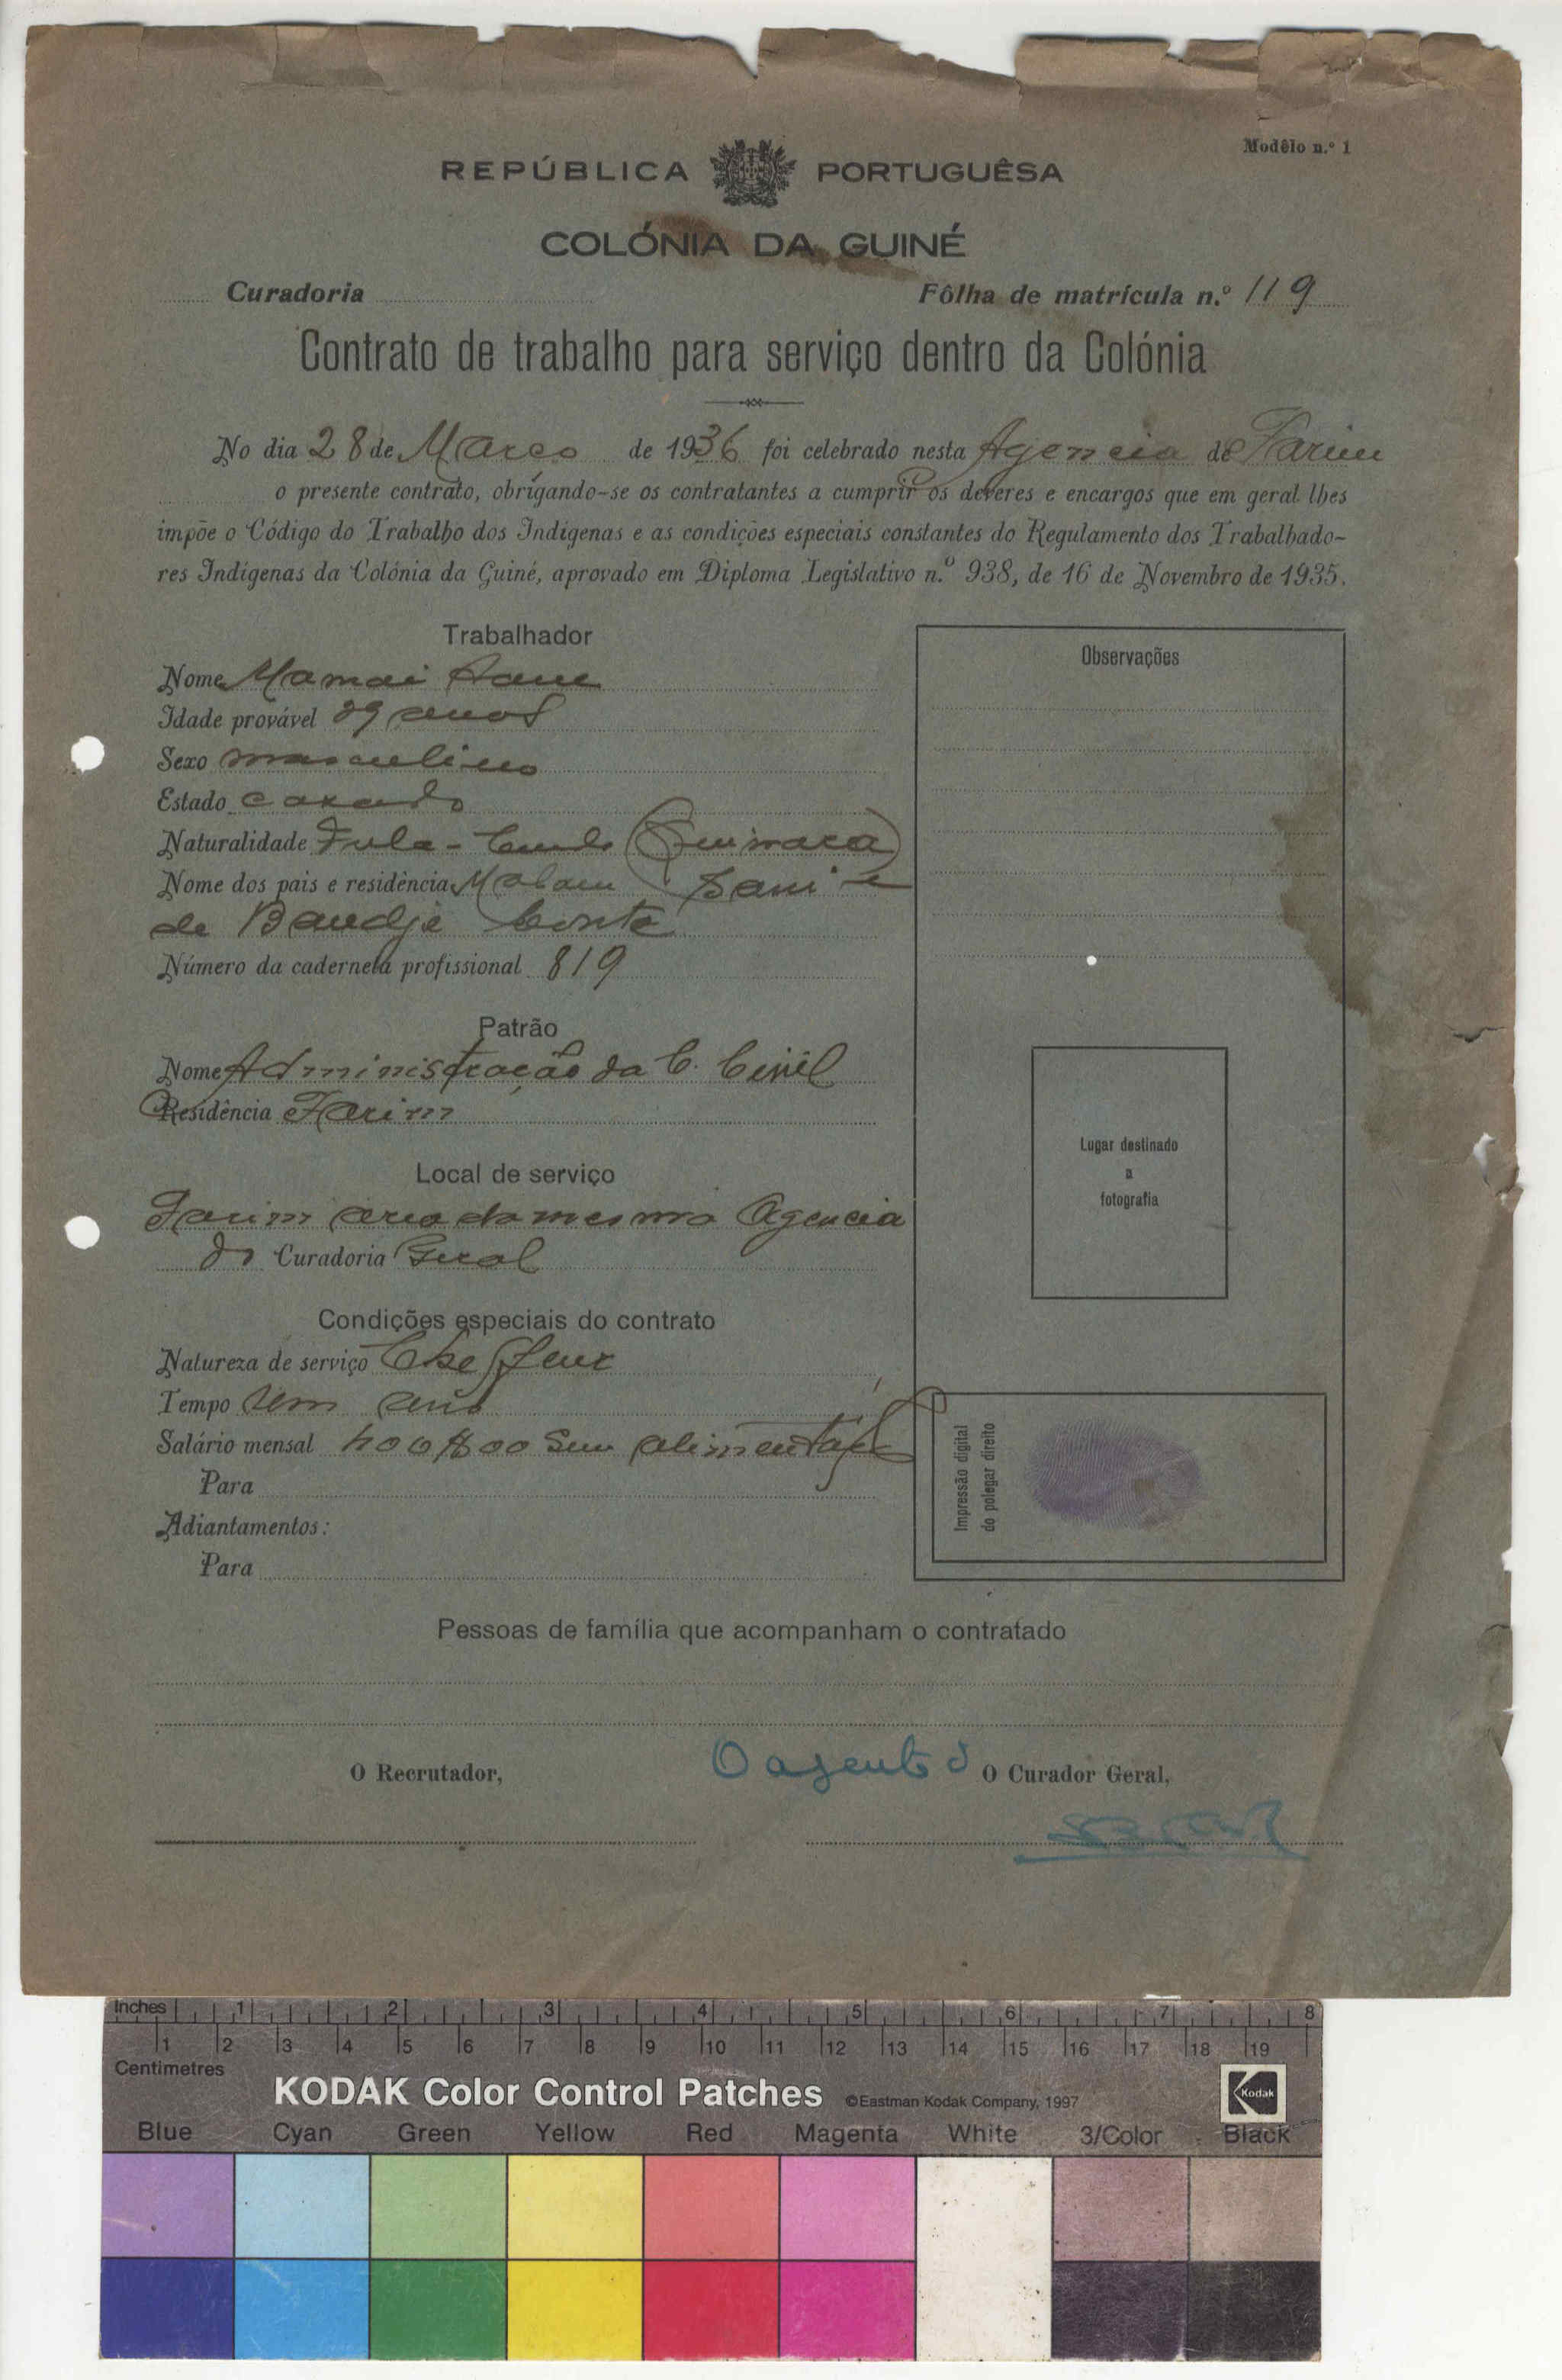 Modêlo n.º 1
REPÚBLICA PORTUGUÊSA
COLÓNIA DA GUINÉ
Curadoria
Fôlha de matrícula n.º 119
Contrato de trabalho para serviço dentro da Colónia
No dia 28 de Março de 1936 foi celebrado nesta Agencia de Farim
o presente contrato, obrigando-se os contratantes a cumprir os deveres e encargos que em geral lhes
impõe o Código do Trabalho dos Indígenas e as condições especiais constantes do Regulamento dos Trabalhado-
res Indígenas da Colónia da Guiné, aprovado em Diploma Legislativo n.º 938, de 16 de Novembro de 1935.
Trabalhador
Nome Mamai Sane
Idade provável 29 anos
Sexo masculino
Estado casado
Naturalidade Fula-
Nome dos pais e residência Malam Sani e
de Baudje Conte
Número da caderneta profissional 819
Patrão
Nome Administração da C. Civil
Residência Farim
Local de serviço
Farim area da mesma Agencia
da Curadoria Geral
Condições especiais do contrato
Natureza de serviço Cheffeur
Tempo um ano
Salário mensal 400$00 sem alimentação
Para
Adiantamentos:
Para
Observações
Lugar destinado
a
fotografia
Impressão digital
do polegar direito
Pessoas de família que acompanham o contratado
O Recrutador,
O agente d O Curador Geral,
Inches 1 2 3 4 5 6 7 8
1 2 3 4 5 6 7 8 9 10 11 12 13 14 15 16 17 18 19
Centimetres
KODAK Color Control Patches ©Eastman Kodak Company, 1997 Kodak
Blue Cyan Green Yellow Red Magenta White 3/Color Black